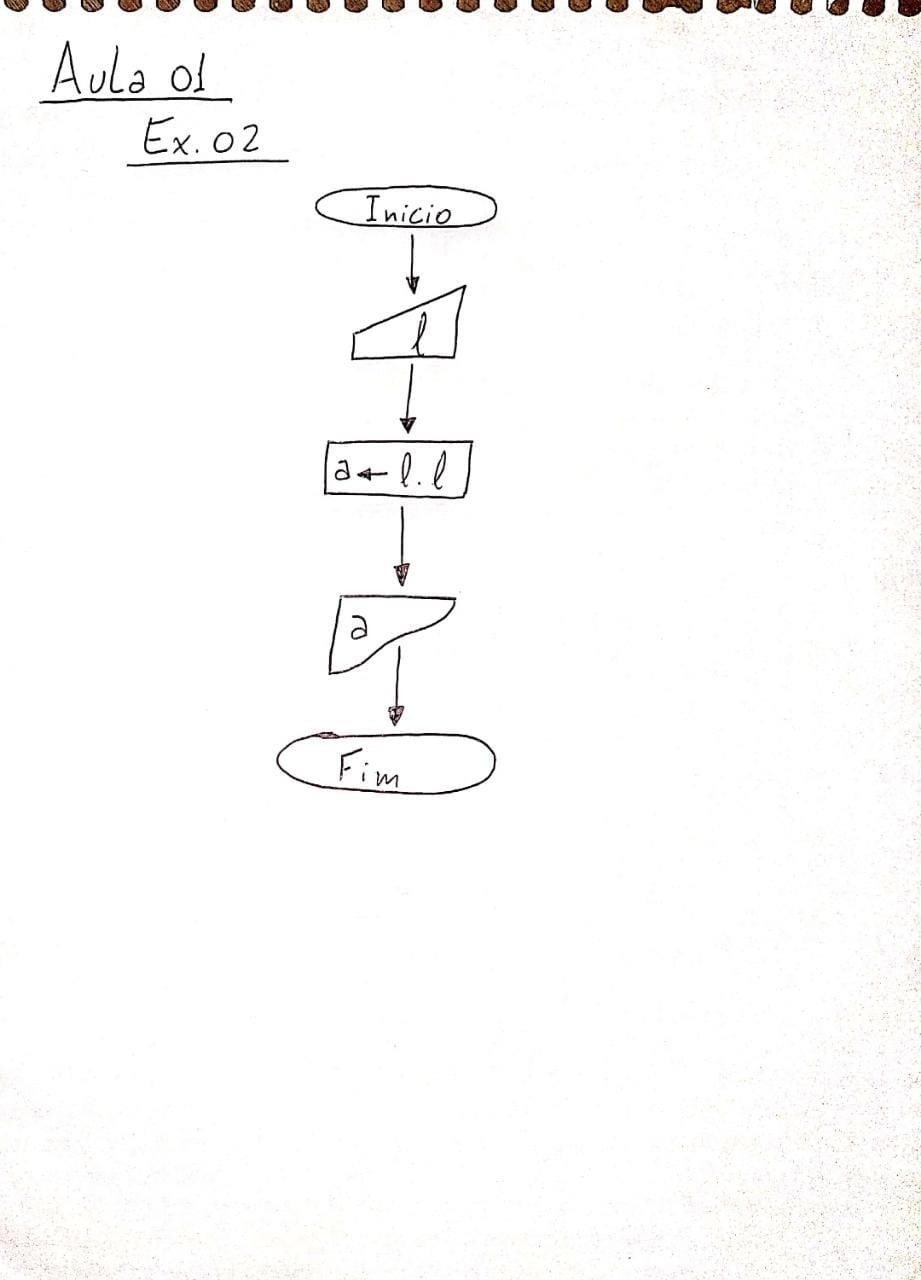 Aula 01
Ex. 02
Inicio
l
a ← l . l
a
Fim